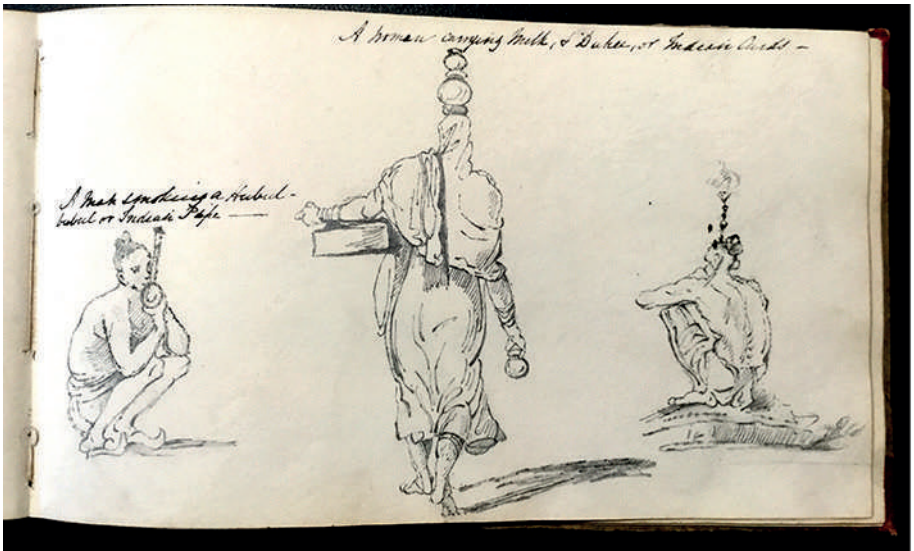 A woman carrying Milk, & Duhee, or Indian Curds —
A Man smoking a Hubul-
bubul or Indian Pipe —